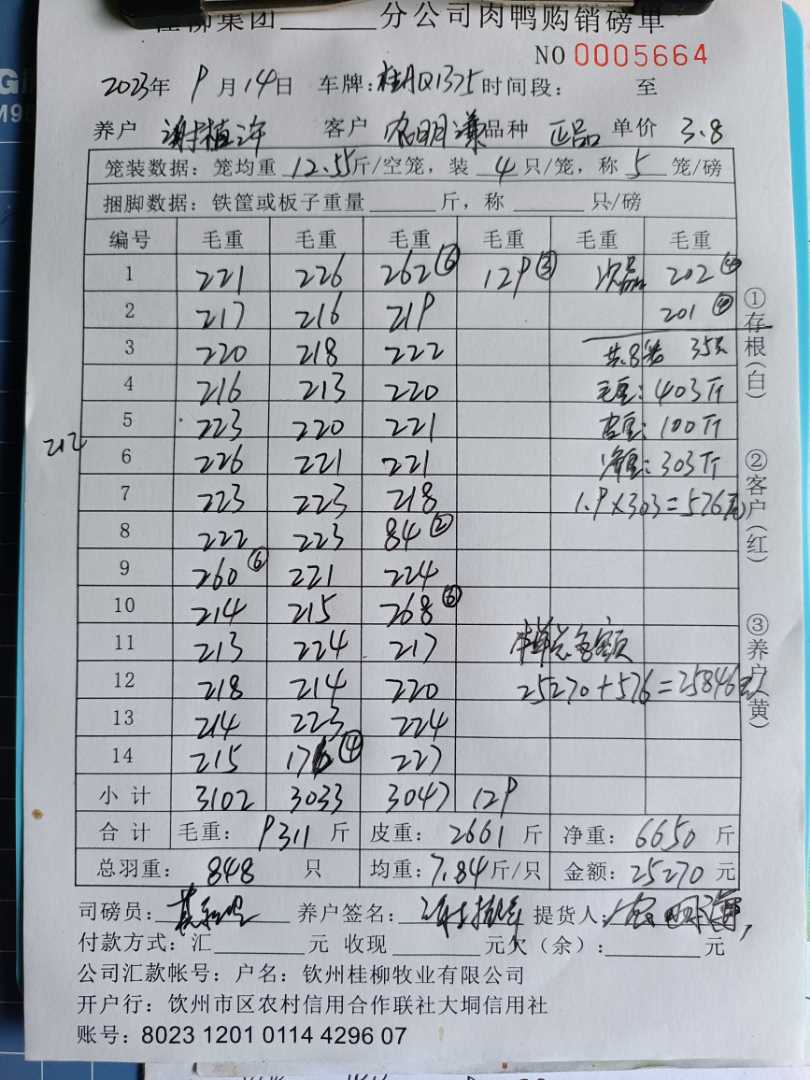 桂柳集团______分公司肉鸭购销磅单
NO 0005664
2023年 9月14日 车牌:桂AQ1375 时间段: 至
养户 谢植许 客户 农明谦 品种 正品 单价 3.8
笼装数据: 笼均重 12.55斤/空笼, 装 4 只/笼, 称 5 笼/磅
捆脚数据: 铁筐或板子重量______斤, 称______只/磅
编号 毛重 毛重 毛重 毛重 毛重 毛重
1 221 226 262⑥ 129③ 次品 202④
2 217 216 219 201④
3 220 218 222 共8笼 35只
4 216 213 220 毛重: 403斤
5 223 220 221 皮重: 100斤
212
6 226 221 221 净重: 303斤
7 223 223 218 1.9×303=576元
8 222 223 84②
9 260⑥ 221 224
10 214 215 268⑥
11 213 224 217 本单总金额
12 218 214 220 25270+576=25846元
13 214 223 224
14 215 176④ 227
小计 3102 3033 3047 129
合计 毛重: 9311 斤 皮重: 2661 斤 净重: 6650 斤
总羽重: 848 只 均重: 7.84斤/只 金额: 25270 元
司磅员: 养户签名: 提货人:
付款方式: 汇______元 收现______元欠(余):______元
公司汇款帐号: 户名: 钦州桂柳牧业有限公司
开户行: 钦州市区农村信用合作联社大垌信用社
账号: 8023 1201 0114 4296 07
①存根(白)
②客户(红)
③养户(黄)